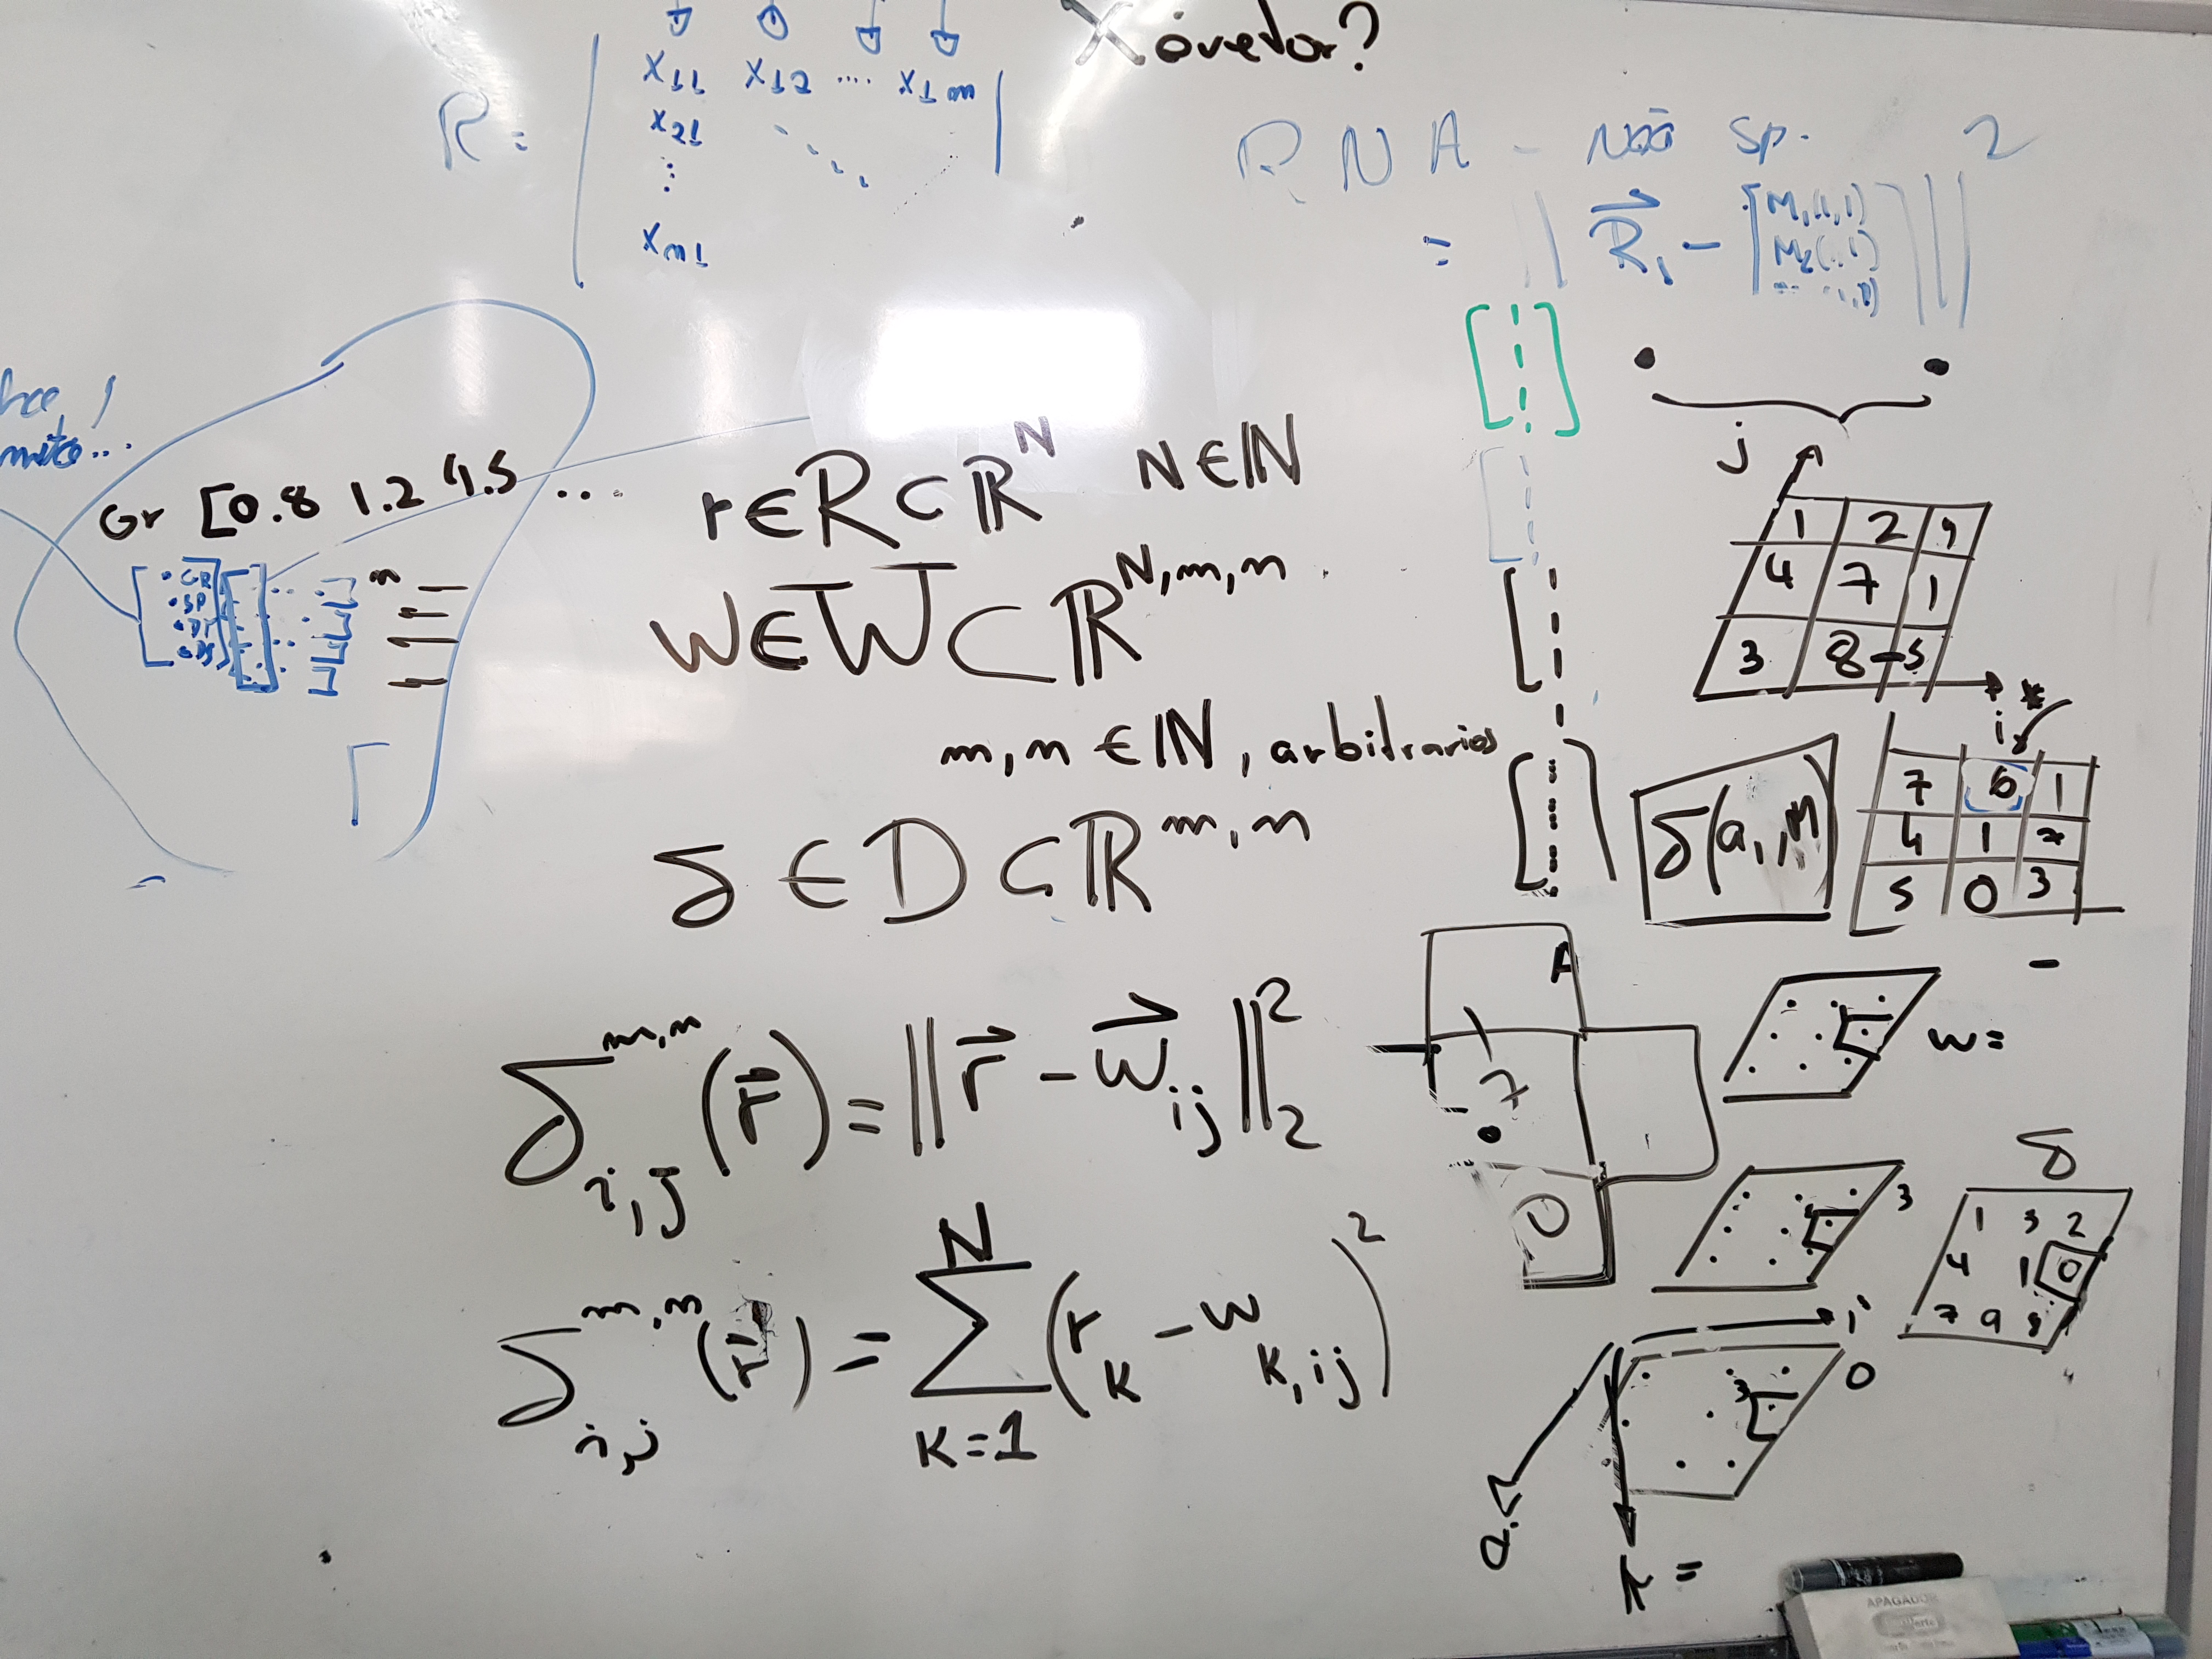 X é vetor?
x11 x12 .... x1m
R =
x21
⋮
xm1
RNA - Não sp.
= || R⃗1 - [M1(1,1) ||2
M2(1,1)
Gr [0.8 1.2 4.5 ...
• GR
• SP
• DT
m
r ∈ R ⊂ ℝ^N N ∈ ℕ
w ∈ W ⊂ ℝ^N,m,n
m,n ∈ ℕ, arbitrarios
δ ∈ D ⊂ ℝ^m,n
δ_i,j^m,n (r⃗) = || r⃗ - w⃗_ij ||_2^2
δ_i,j^m,n (r⃗) = Σ_K=1^N (r_K - w_K,ij)^2
j
1 2 9
4 7 1
3 8 5
i *
7 6 1
4 1
5 0 3
-
A
7
0
w=
3
δ
1 3 2
4 1 0
7 9
i
0
K =
APAGADOR